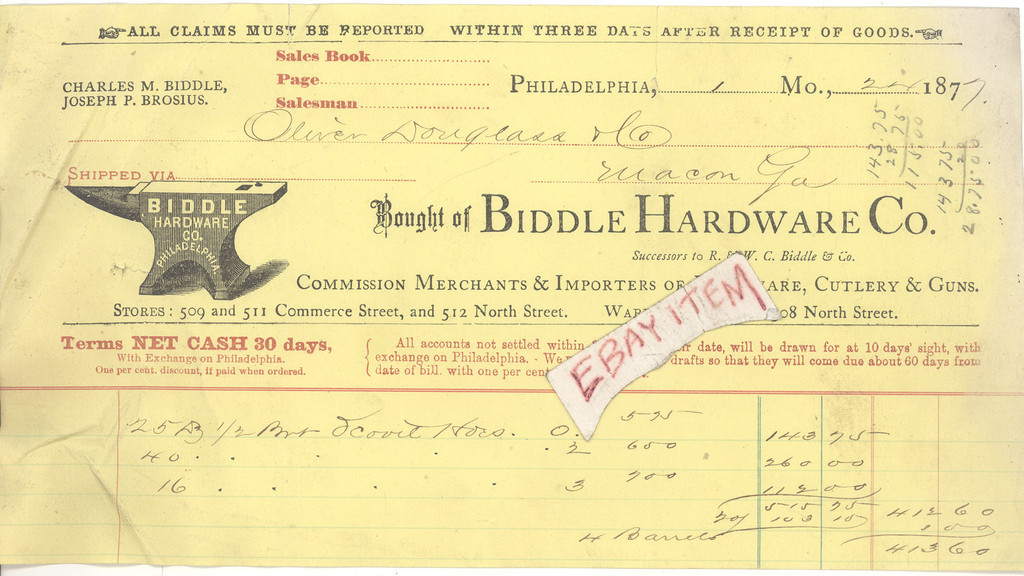 ALL CLAIMS MUST BE REPORTED WITHIN THREE DAYS AFTER RECEIPT OF GOODS.
CHARLES M. BIDDLE,
JOSEPH P. BROSIUS.
Sales Book
Page
Salesman
PHILADELPHIA, 1 Mo., 24 1877.
Oliver Douglass & Co
SHIPPED VIA
Macon Ga
143.75
28.75
115.00
143.75
20
28.75.00
BIDDLE
HARDWARE
CO.
PHILADELPHIA
Bought of BIDDLE HARDWARE CO.
Successors to R. & W. C. Biddle & Co.
COMMISSION MERCHANTS & IMPORTERS OF CUTLERY & GUNS.
STORES: 509 and 511 Commerce Street, and 512 North Street. 08 North Street.
EBAY ITEM
Terms NET CASH 30 days,
With Exchange on Philadelphia.
One per cent. discount, if paid when ordered.
All accounts not settled within date, will be drawn for at 10 days' sight, with
exchange on Philadelphia. - We drafts so that they will come due about 60 days from
date of bill. with one per cent
25 Dz 1/2 Brt Scovil Hoes. 0. 575 143 75
40 . . . . 2 650 260 00
16 . . . . 3 700 112 00
20/ 515 75 412 60
103 15 1 00
4 Barrels 413 60